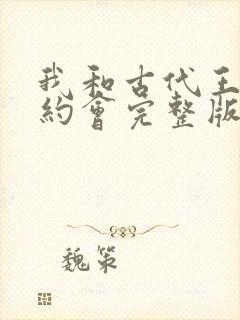 我和古代王
約會完整版
魏策